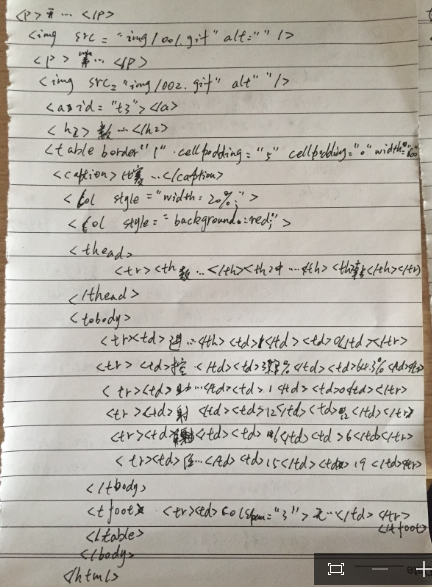 <p> … </p>
<img src = "img/001.gif" alt="" />
<p> 第… </p>
<img src="img/002.gif" alt" "/>
<a id = "t3"></a>
<h2> 数…</h2>
<table border"1" cellpadding="5" cellpadding="0" width=
<caption> 比赛…</caption>
<col style="width=20%;">
<col style="background:red;">
<thead>
<tr><th 数…</th><th>中…</th> <th></th></tr>
</thead>
<tobody>
<tr><td> 进…</th> <td></td> <td>0</td></tr>
<tr> <td>控 </td><td>35.7%</td><td>64.3%</td></tr>
<tr><td> 助…</td><td>1</td><td>0</td></tr>
<tr><td>射 </td><td>12</td><td></td></tr>
<tr><td> </td><td></td><td>6</td></tr>
<tr><td>任…</td><td>15</td><td> 19 </td></tr>
</tbody>
<tfoot <tr><td colspan="3">无…</td></tr>
</tfoot>
</table>
</body>
</html>